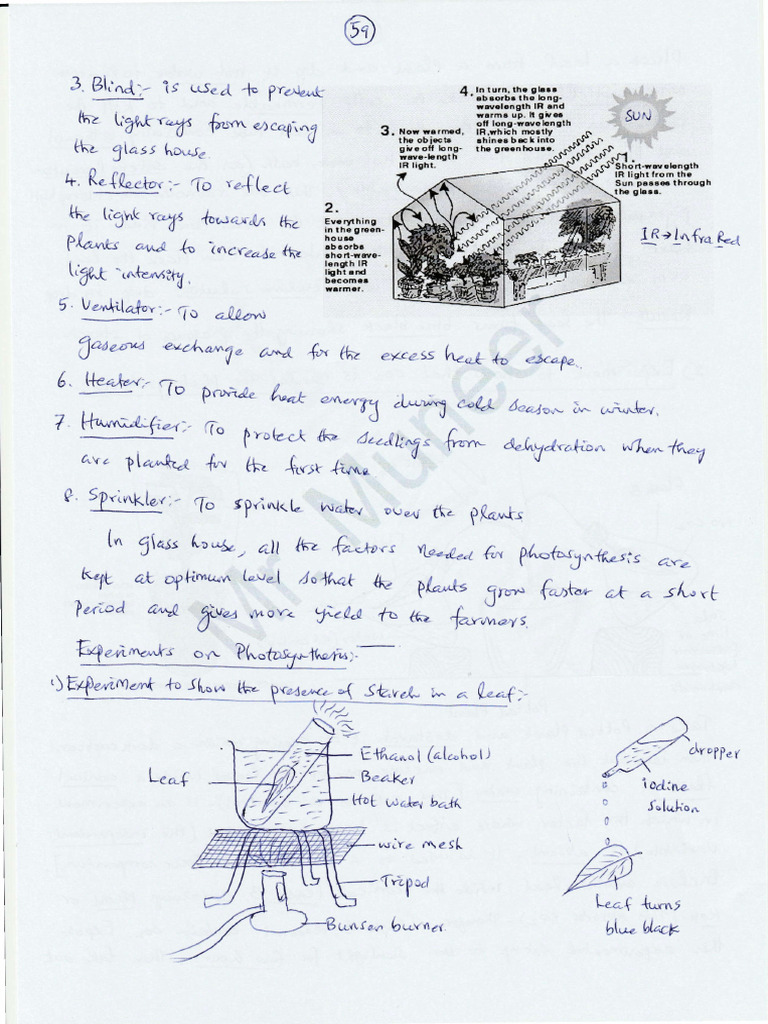 59
3. Blind:- is used to prevent
the light rays from escaping
the glass house.
4. Reflector:- To reflect
the light rays towards the
plants and to increase the
light intensity.
5. Ventilator:- To allow
gaseous exchange and for the excess heat to escape.
4. In turn, the glass
absorbs the long-
wavelength IR and
warms up. It gives
off long-wavelength
IR,which mostly
shines back into
the greenhouse.
SUN
3. Now warmed,
the objects
give off long-
wave-length
IR light.
1.
Short-wavelength
IR light from the
Sun passes through
the glass.
2.
Everything
in the green-
house
absorbs
short-wave-
length IR
light and
becomes
warmer.
IR→Infra Red
6. Heater:- To provide heat energy during cold season in winter.
7. Humidifier:- To protect the seedlings from dehydration when they
are planted for the first time
8. Sprinkler:- To sprinkle water over the plants
In glass house, all the factors needed for photosynthesis are
kept at optimum level so that the plants grow faster at a short
Period and gives more yield to the farmers.
Experiments on Photosynthesis:-
1) Experiment to show the presence of starch in a leaf:-
Ethanol (alcohol)
Leaf
Beaker
Hot water bath
wire mesh
Tripod
Bunsen burner
dropper
iodine
solution
Leaf turns
blue black
Mr. Muneer